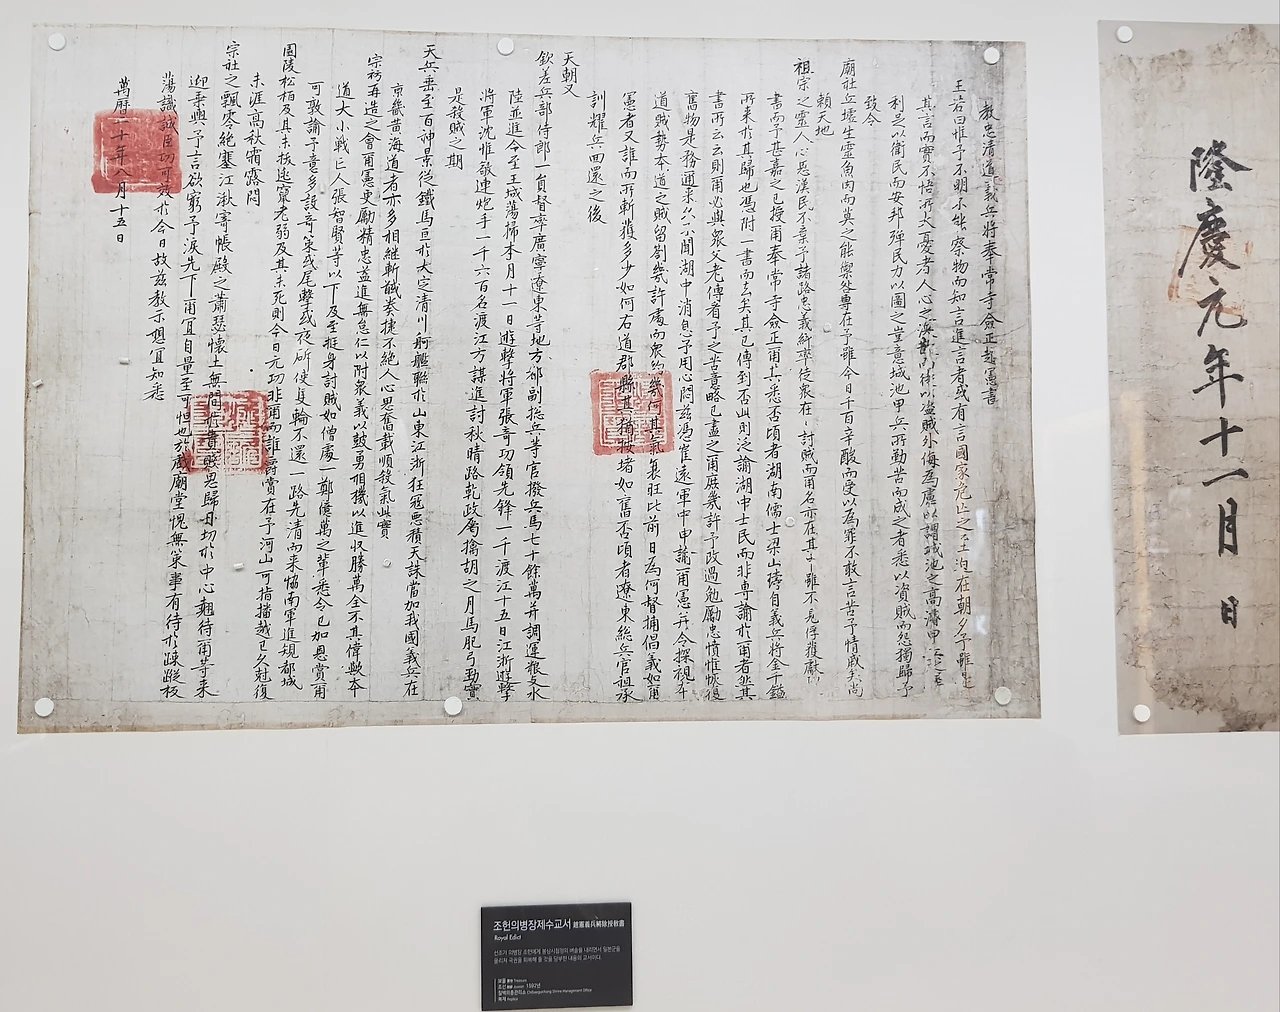 教忠清道義兵將奉常寺僉正趙憲書
王若曰惟予不明不能察物而知言進言者或有言國家危亡之至迫在朝夕予雖是
其言而實不悟所大憂者人心之渙散而徒以盜賊外侮為慮以謂城池之高濬甲
利是以衛民而安邦殫民力以圖之豈意城池甲兵所勤苦而成之者悉以資賊而怨獨歸予
致令
廟社丘墟生靈魚肉而莫之能禦咎專在予雖今日千百辛酸而受以為罪不敢言苦予情慼矣尚
賴天地
祖宗之靈人心思漢民不棄予諸路忠義糾率徒衆在〻討賊而爾名亦在其中雖不見俘獲獻
書而予甚嘉之已授爾奉常寺僉正爾其悉否頃者湖南儒士梁山璹自義兵將金千鎰
所来於其歸也憑附一書而去矣其已傳到否此則泛諭湖中士民而非專諭於爾者然其
書所云云則爾必與衆父老傳看予之苦意略已盡之爾庶幾許予改過勉勵忠憤惟恢復
舊物是務邇来久不聞湖中消息予用心悶茲憑崔遠軍中申諭爾憲并令探視本
道賊勢本道之賊留劄幾許處而衆約幾何其氣衰旺比前日為何督捕倡義如爾
憲者又誰而所斬獲多少如何右道郡縣其捕按堵如舊否頃者遼東総兵官祖承
訓耀兵西還之後
天朝又
欽差兵部侍郎一員督率廣寧遼東等地方郝副総兵等官撥兵馬七十餘萬并調運粮支水
陸並進令至王城蕩掃本月十一日遊擊將軍張奇功領先鋒一千渡江十五日江浙遊擊
將軍沈惟敬連炮手一千六百名渡江方謀進討秋晴路乾政屬擒胡之月馬肥弓勁實
是殺賊之期
天兵垂至百神景從鐵馬亘於大定清川舸艦聯於山東江浙狂寇悪積天誅當加我國義兵在
京畿黄海道者亦多相維斬馘奏捷不絶人心思奮載順殺氣此實
宗祊再造之會爾憲更勵精忠益進無怠仁以附衆義以鼓勇相機以進收勝萬全不其偉歟本
道大小戰亡人張智賢等以下及至挺身討賊如僧處一鄭億萬之輩悉令已加恩賞爾
可敦諭予意多設奇策或尾擊或夜斫使隻輪不還一路先清而来恊南軍進規都城
園陵松栢及其未拔逃竄老弱及其未死則今日元功非爾而誰爵賞在予河山可指播越已久冠復
未涯高秋霜露閟
宗社之飄零絶塞江湫寄帳殿之蕭瑟懷土無間於貴賤思歸毋切於中心翹待爾等来
迎乗輿予言欲窮予淚先下爾宜自量至可怛也於戲廟堂愧無策事有待於踈蹤板
蕩識誠臣功可於今日故茲教示想宜知悉
萬曆二十年八月十五日
隆慶元年十一月 日
조헌의병장제수교서 趙憲義兵將除授敎書
Royal Edict
선조가 의병장 조헌에게 봉상시첨정의 벼슬을 내리면서 일본군을
물리쳐 국권을 회복해 줄 것을 당부한 내용의 교서이다.
보물 Treasure
조선 Joseon 1592년
칠백의총관리소 Chilbaeguichong Shrine Management Office
복제 Replica